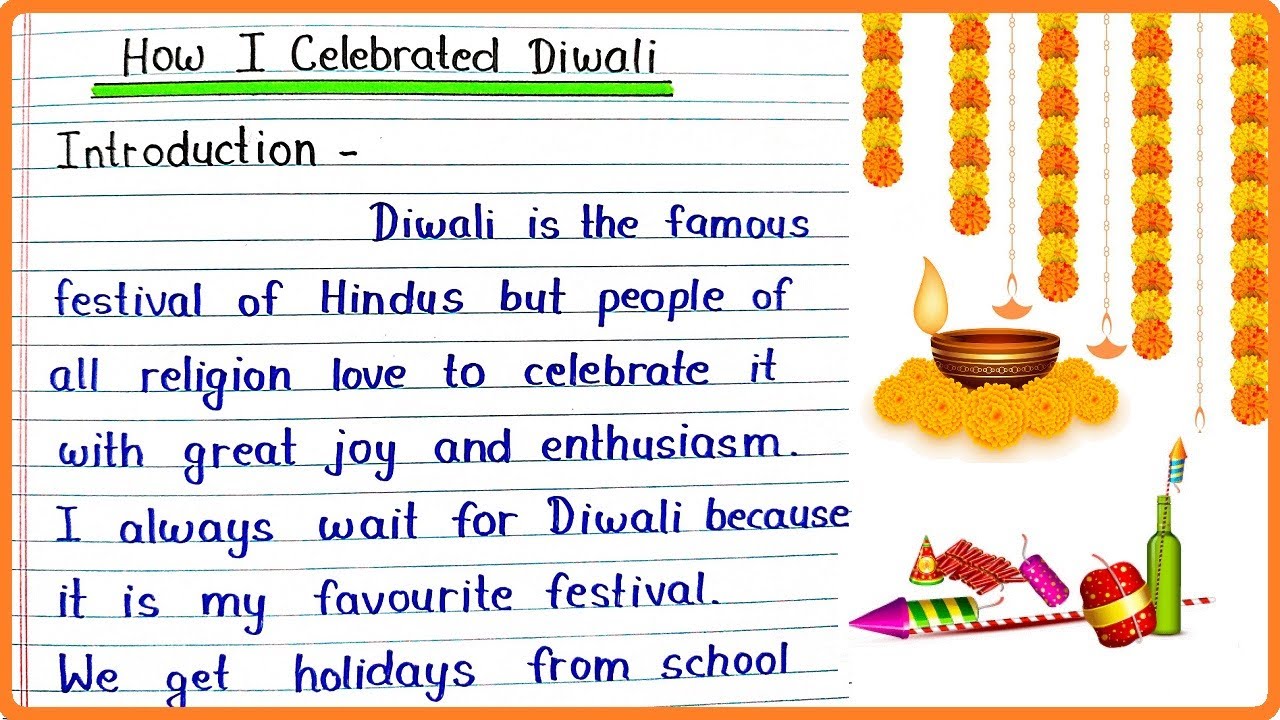 How I Celebrated Diwali
Introduction -
Diwali is the famous
festival of Hindus but people of
all religion love to celebrate it
with great joy and enthusiasm.
I always wait for Diwali because
it is my favourite festival.
We get holidays from school